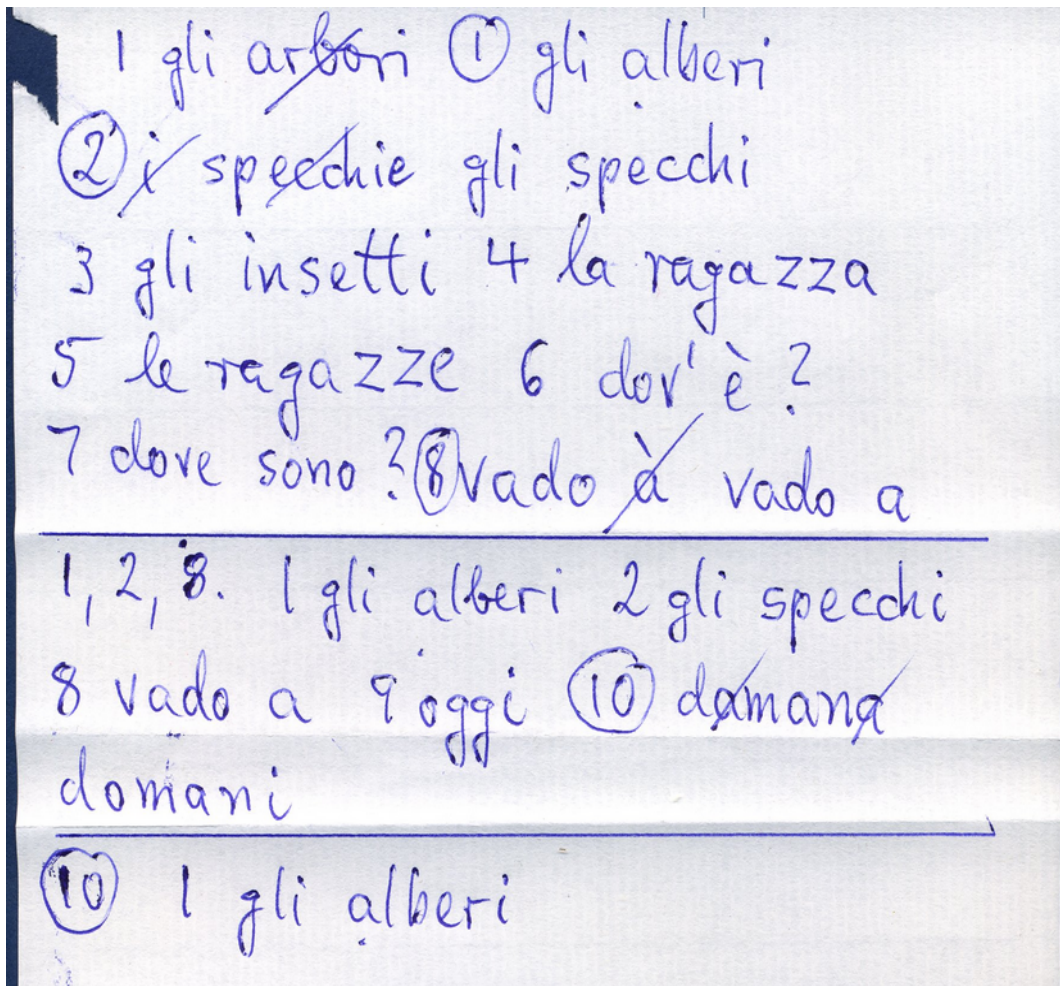 1 gli arbori ① gli alberi
② i specchie gli specchi
3 gli insetti 4 la ragazza
5 le ragazze 6 dov'è?
7 dove sono? ⑧ vado à vado a
1, 2, 8. 1 gli alberi 2 gli specchi
8 vado a 9 oggi ⑩ damana
domani
⑩ 1 gli alberi